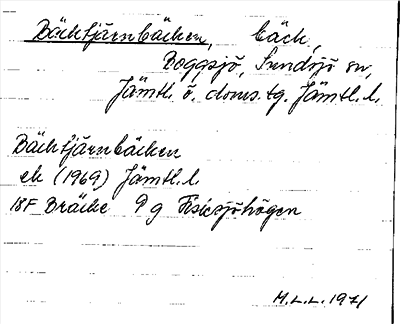 Bäcktjärnbäcken, bäck,
Boggsjö, Sundsjö sn,
Jämtl. ö. doms. tg. Jämtl. l.
Bäcktjärnbäcken
ek (1969) Jämtl. l.
18F Bräcke 9 g Fisksjöhögen
M.L.L. 1971